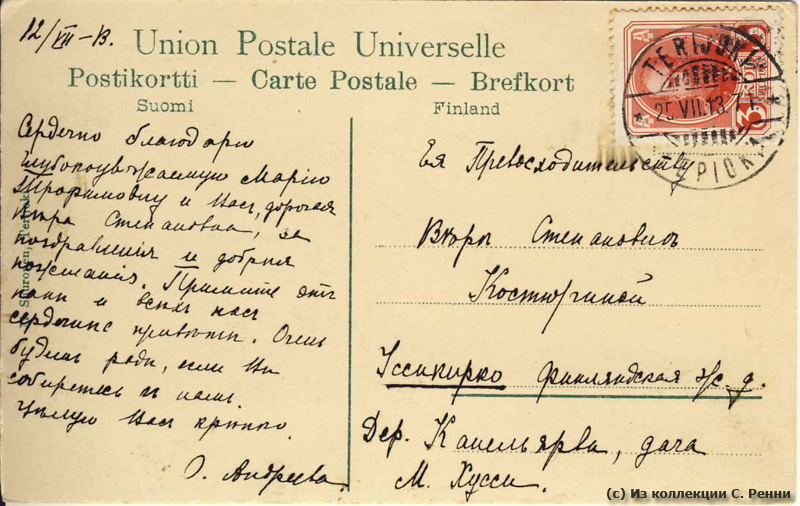 12/VII-13.
Union Postale Universelle
Postikortti — Carte Postale — Brefkort
Suomi
Finland
TERIJOKI
25.VII.13.
3
Сердечно благодарю
глубокоуважаемую Марію
Трофимовну и Васъ, дорогая
Вѣра Степановна, за
поздравленія и добрыя
пожеланія. Примите отъ
папы и всѣхъ насъ
сердечные привѣты. Очень
будемъ рады, если Вы
соберетесь къ намъ.
Цѣлую Васъ крѣпко.
О. Андреева
Ея Превосходительству
Вѣрѣ Степановнѣ
Костюриной
Уссикирко Финляндская ж. д.
Дер. Капельярви, дача
М. Хусси.
(c) Из коллекции С. Ренни